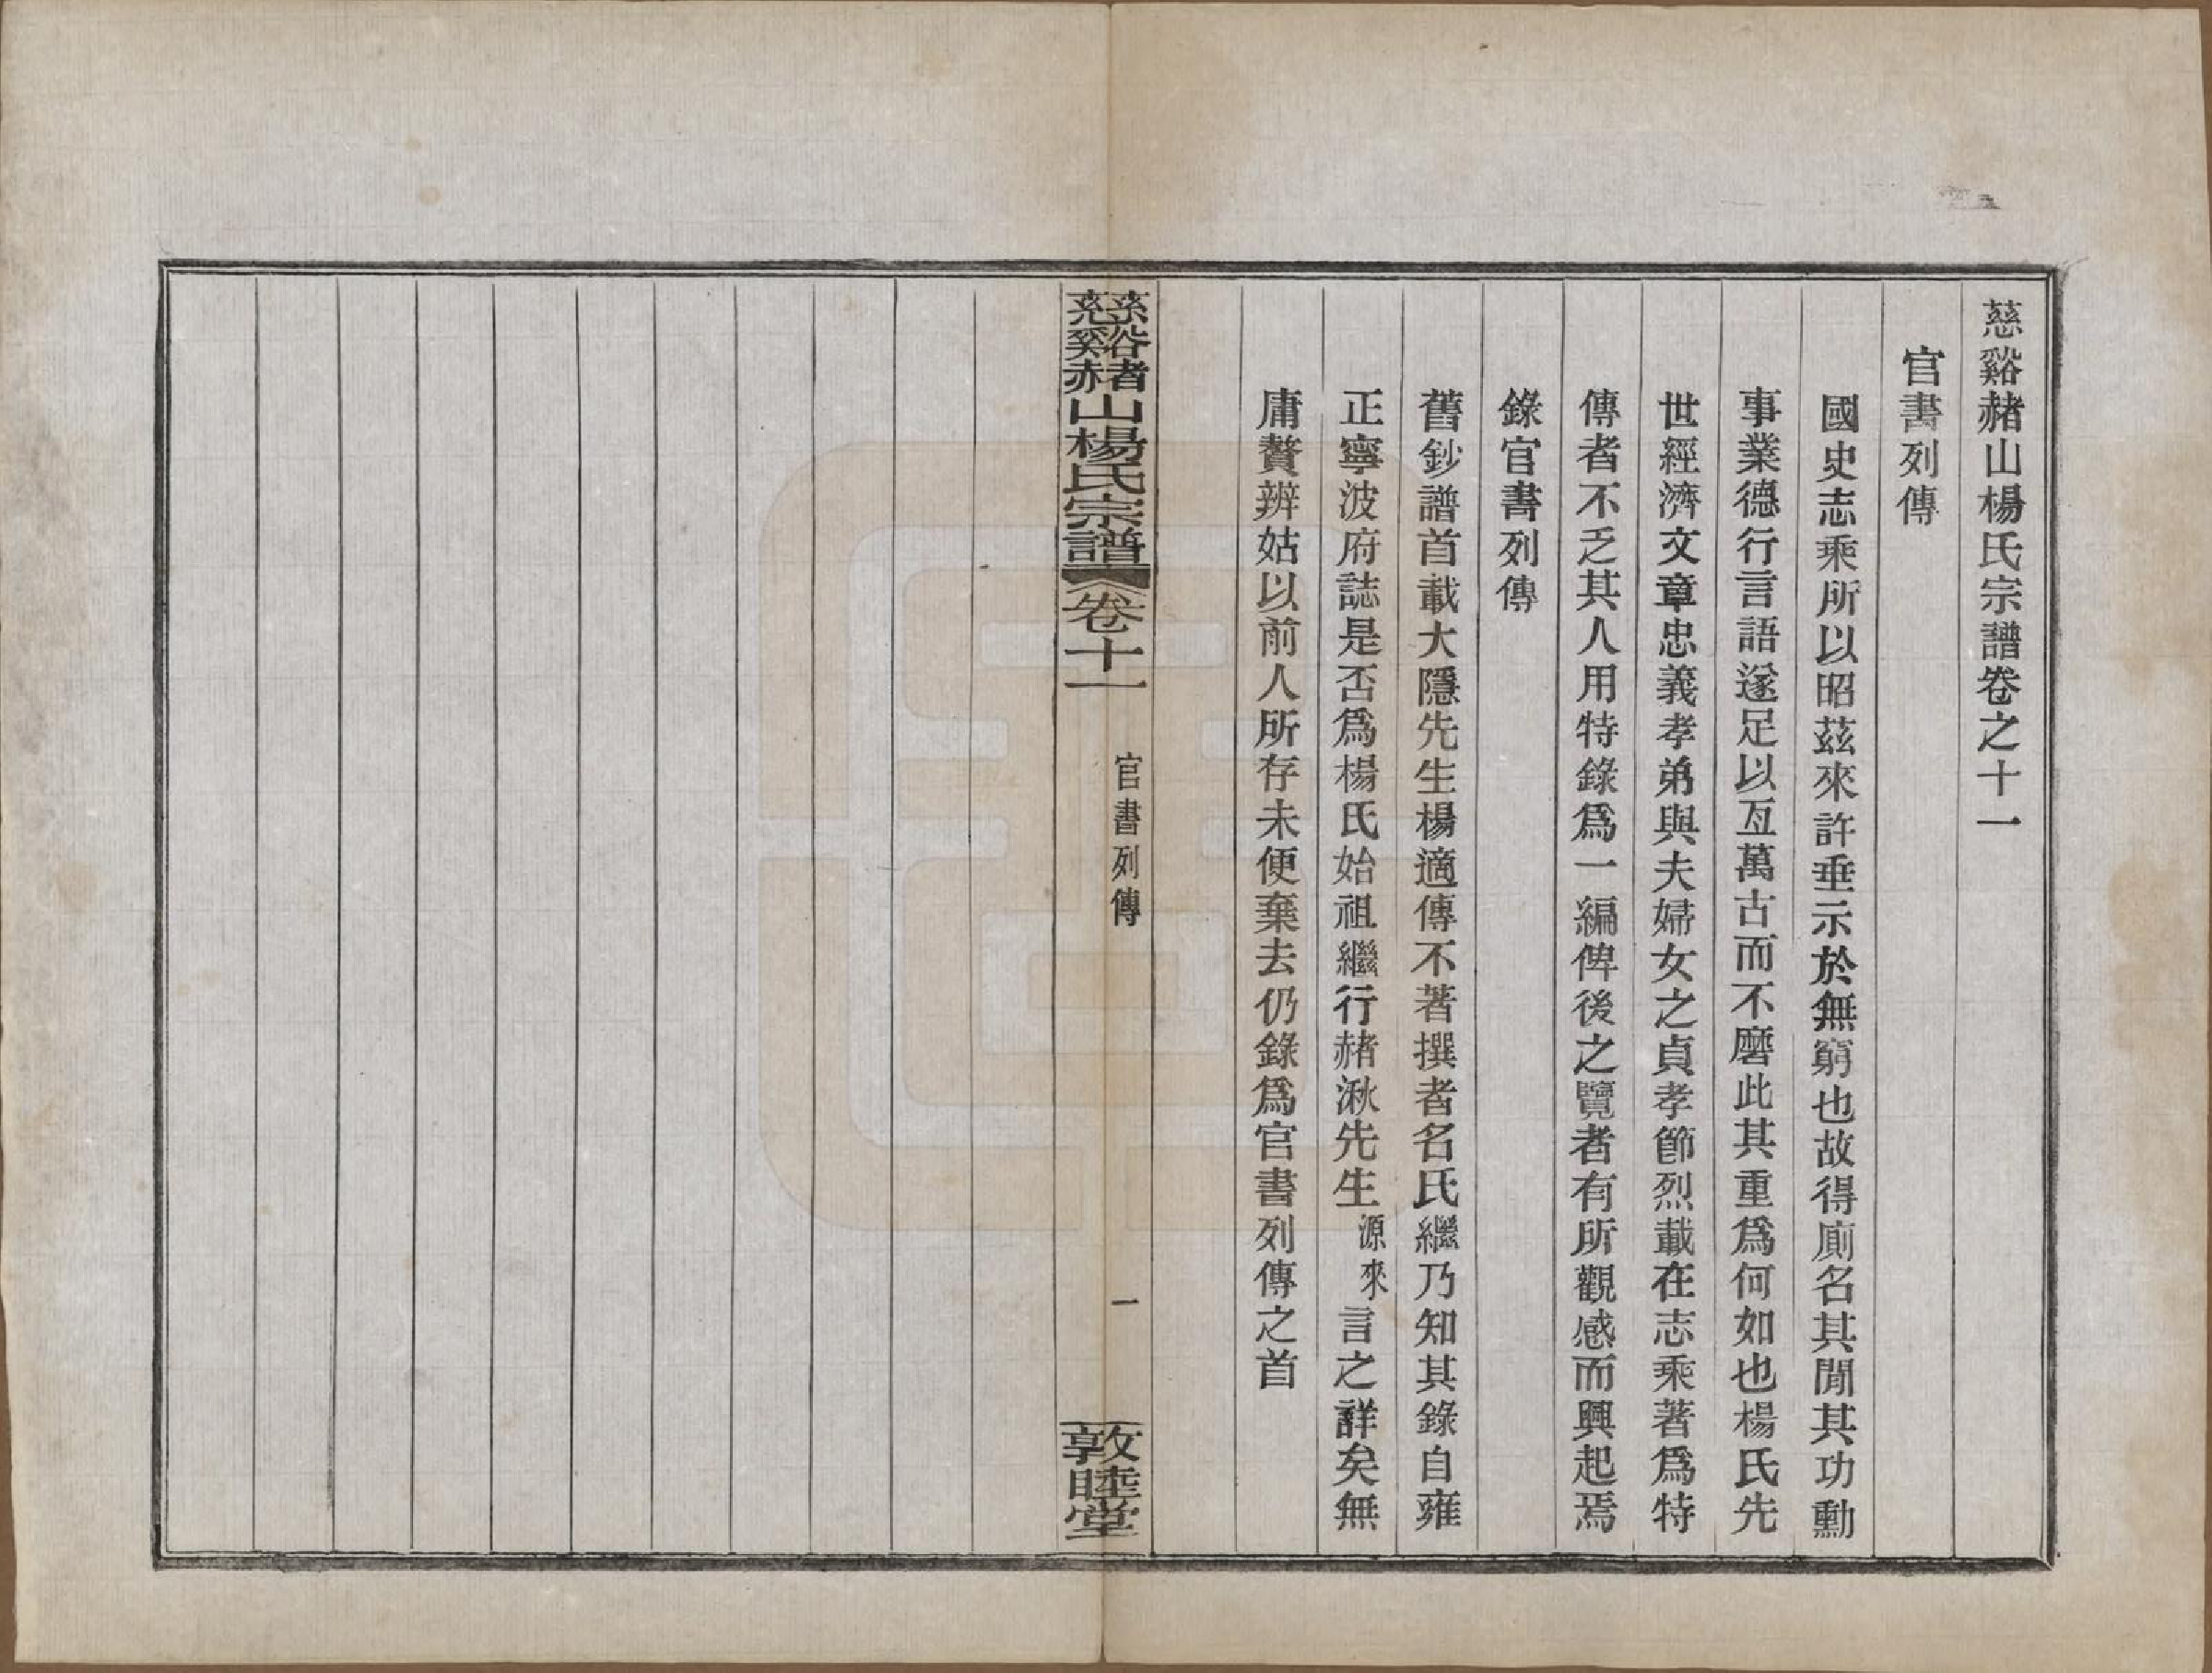 慈谿赭山楊氏宗譜卷之十一
官書列傳
國史志乘所以昭茲來許垂示於無窮也故得廁名其閒其功勳
事業德行言語遂足以亙萬古而不磨此其重爲何如也楊氏先
世經濟文章忠義孝弟與夫婦女之貞孝節烈載在志乘著爲特
傳者不乏其人用特錄爲一編俾後之覽者有所觀感而興起焉
錄官書列傳
舊鈔譜首載大隱先生楊適傳不著撰者名氏繼乃知其錄自雍
正寧波府誌是否爲楊氏始祖繼行赭湫先生源來言之詳矣無
庸贅辨姑以前人所存未便棄去仍錄爲官書列傳之首
慈谿赭山楊氏宗譜 卷十一 官書列傳 一 敦睦堂